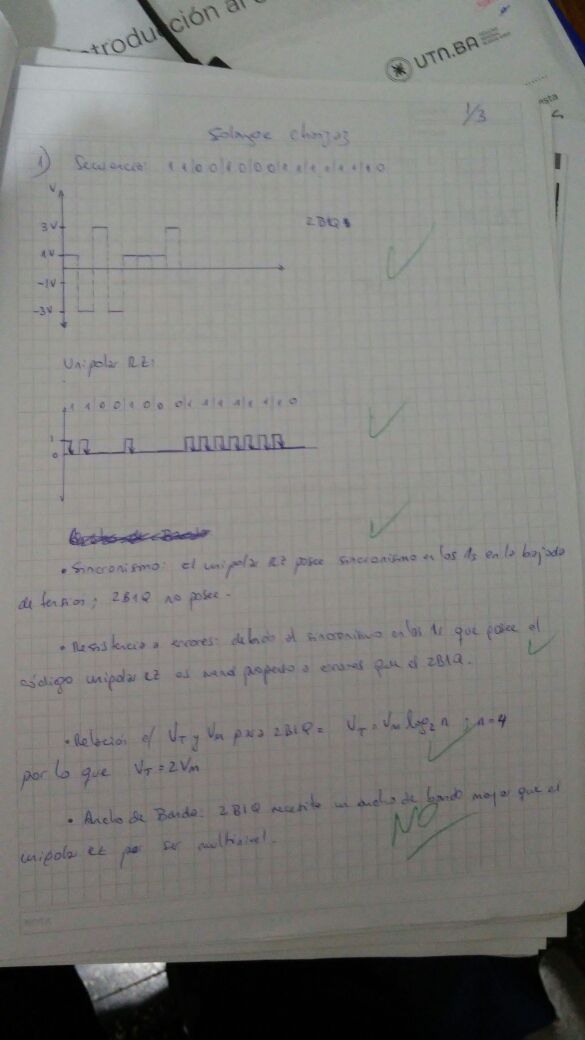 ntroducción al
UTN.BA
1/3
Solange
1) Secuencia: 1 1|0 0|1 0|0 0|1 1|1 1|1 1|1 0
V
3V
2B1Q
1V
-1V
-3V
Unipolar RZ:
1 1 0 0|1 0 0 0|1 1|1 1|1 1|1 0
1
0
• Sincronismo: el unipolar RZ posee sincronismo en los 1s en la bajada
de tension; 2B1Q no posee.
• Resistencia a errores: debido al sincronismo en los 1s que posee el
código unipolar RZ es menos propenso a errores que el 2B1Q.
• Relación e/ VT y VM para 2B1Q = VT = VM log2 n ; n=4
por lo que VT = 2VM
• Ancho de Banda: 2B1Q necesita un ancho de banda mayor que el
NO
unipolar RZ por ser multinivel.